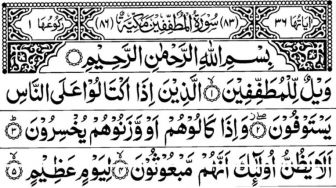 اٰیَاتُهَا ٣٦ (٨٣) سُوْرَةُ الْمُطَفِّفِيْنَ مَكِّيَّةٌ (٨٦) رُكُوْعُهَا ١
بِسْمِ اللهِ الرَّحْمٰنِ الرَّحِيْمِ
وَيْلٌ لِّلْمُطَفِّفِيْنَ ۙ﴿١﴾ الَّذِيْنَ اِذَا اكْتَالُوْا عَلَى النَّاسِ
يَسْتَوْفُوْنَ ۖ﴿٢﴾ وَاِذَا كَالُوْهُمْ اَوْ وَّزَنُوْهُمْ يُخْسِرُوْنَ ﴿٣﴾
اَلَا يَظُنُّ اُولٰٓئِكَ اَنَّهُمْ مَّبْعُوْثُوْنَ ۙ﴿٤﴾ لِيَوْمٍ عَظِيْمٍ ۙ﴿٥﴾